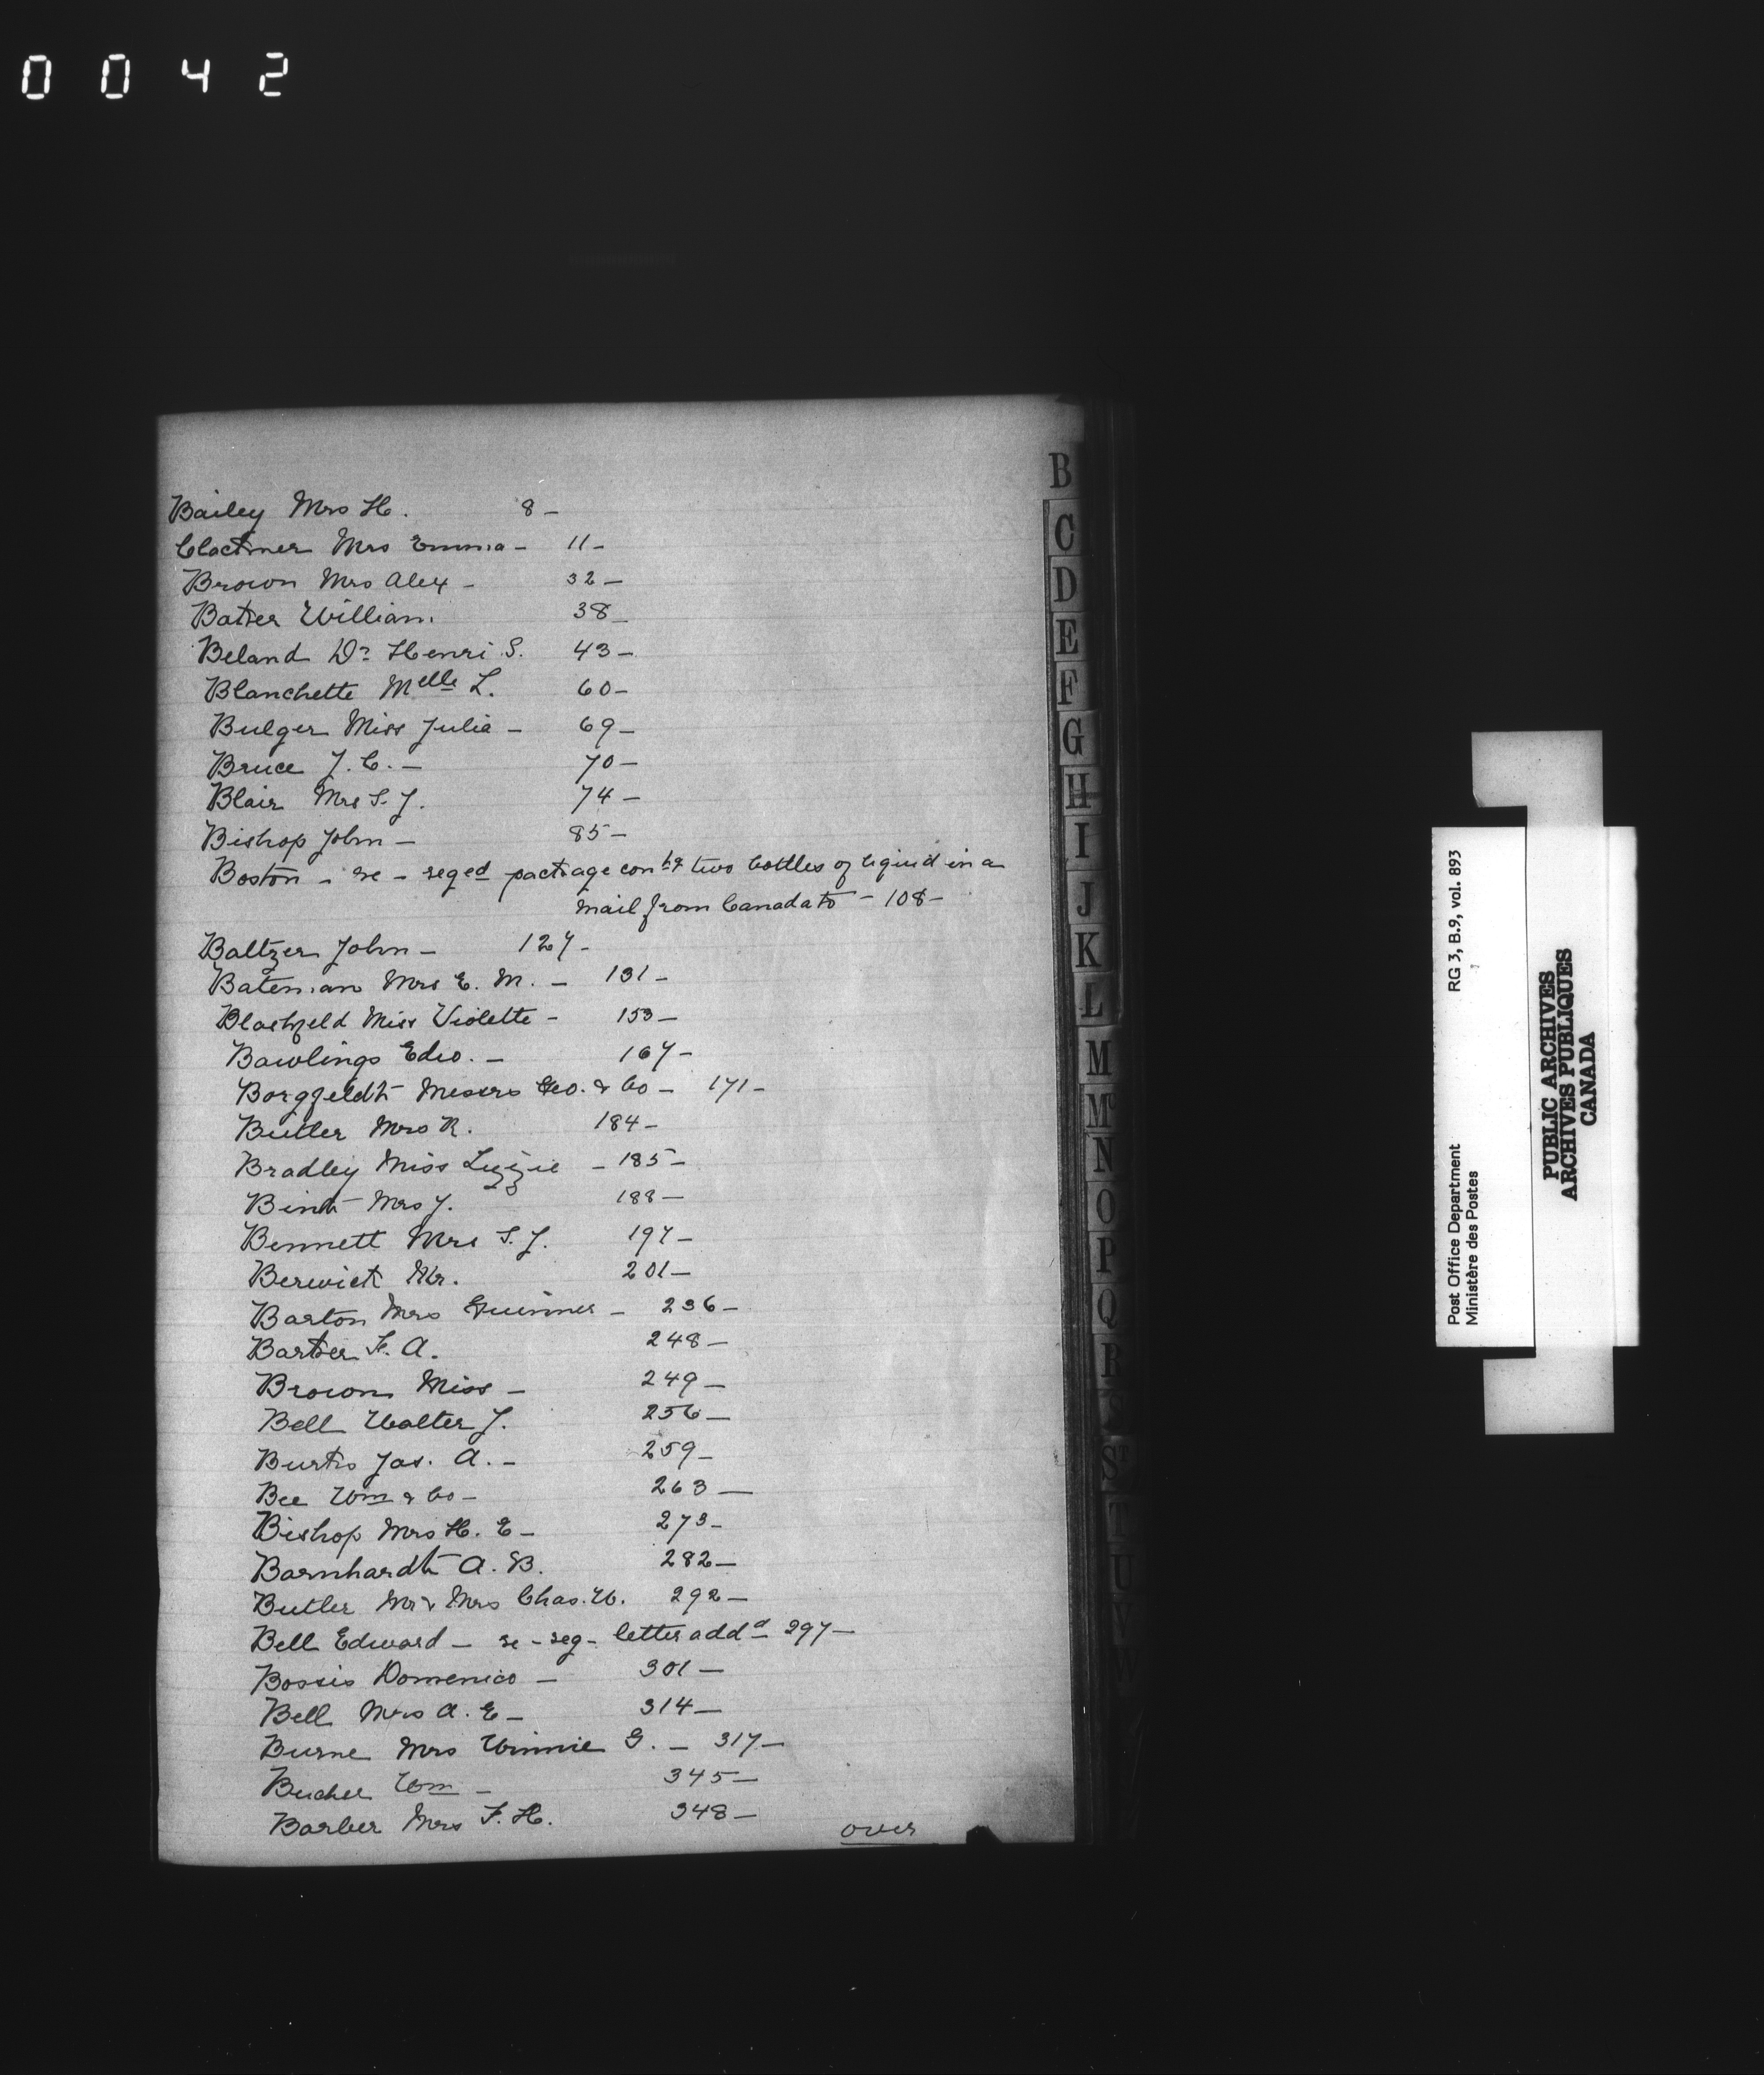 0 0 4 2
Bailey Mrs H. 8 -
Clackmer Mrs Emma - 11 -
Brown Mrs Alex - 32 -
Baker William 38 -
Beland Dr Henri S. 43 -
Blanchette Melle L. 60 -
Bulger Miss Julia - 69 -
Bruce J. C. - 70 -
Blair Mrs S. J. 74 -
Bishop John - 85 -
Boston - re - reged package contg two bottles of liquid in a
mail from Canada to - 108 -
Baltzer John - 127 -
Bateman Mrs E. M. - 131 -
Blashfeld Miss Violette - 153 -
Bawlings Edw. - 167 -
Borgfeldt Messrs Geo. & Co - 171 -
Butler Mrs R. 184 -
Bradley Miss Lizzie - 185 -
Binh Mrs J. 188 -
Bennett Mrs S. J. 197 -
Berwick Mr. 201 -
Barton Mrs - 236 -
Barker F. A. 248 -
Brown Miss - 249 -
Bell Walter J. 256 -
Burtis Jas. A. - 259 -
Bee Wm & Co - 263 -
Bishop Mrs H. E - 273 -
Barnhardt A. B. 282 -
Butler Mr & Mrs Chas. W. 292 -
Bell Edward - re - reg - letter addd 297 -
Bossio Domenico - 301 -
Bell Mrs A. E - 314 -
Burne Mrs Winnie G. - 317 -
Buchel Wm - 345 -
Barber Mrs F. H. 348 -
over
B
C
D
E
F
G
H
I
J
K
L
M
Mc
N
O
P
Q
R
S
ST
T
U
V
W
Post Office Department RG 3, B.9, vol. 893
Ministère des Postes
PUBLIC ARCHIVES
ARCHIVES PUBLIQUES
CANADA